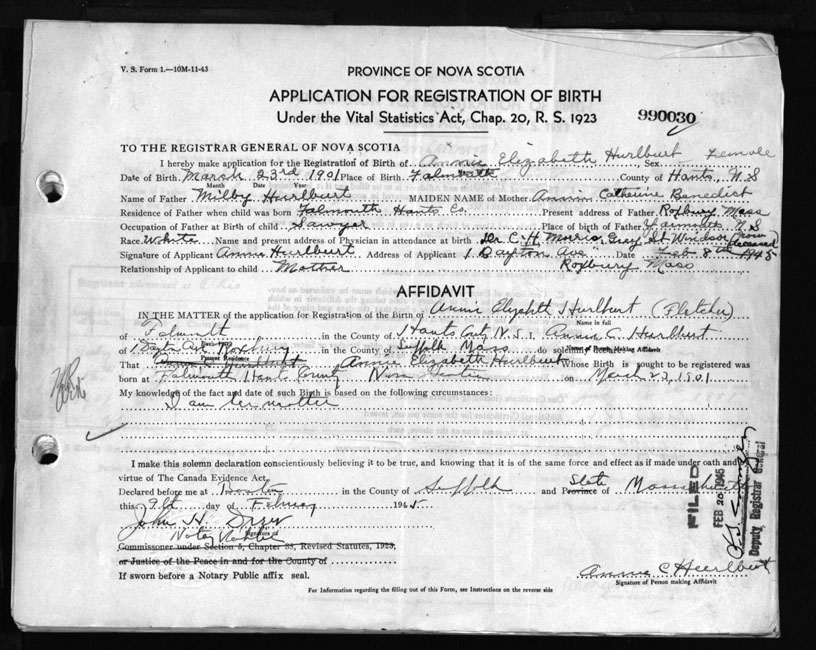 V. S. Form 1.—10M-11-43
PROVINCE OF NOVA SCOTIA
APPLICATION FOR REGISTRATION OF BIRTH
Under the Vital Statistics Act, Chap. 20, R. S. 1923
990030
TO THE REGISTRAR GENERAL OF NOVA SCOTIA
I hereby make application for the Registration of Birth of Annie Elizabeth Hurlburt Sex Female
Date of Birth March 23rd 1901 Place of Birth Falmouth County of Hants, N. S
Month Date Year
Name of Father Milby Hurlburt MAIDEN NAME of Mother Annie Catherine Benedict
Residence of Father when child was born Falmouth Hants Co. Present address of Father Roxbury Mass
Occupation of Father at Birth of child Sawyer Place of birth of Father N. S
Race White Name and present address of Physician in attendance at birth Dr. C. H. Morris, Gray St Windsor (now deceased)
Signature of Applicant Annie Hurlburt Address of Applicant 1 Bayton Ave Date Feb 8th 1945
Relationship of Applicant to child Mother Roxbury Mass
AFFIDAVIT
IN THE MATTER of the application for Registration of the Birth of Annie Elizabeth Hurlburt (Fletcher)
Name in full
of Falmouth in the County of Hants Conty N. S. I, Annie C. Hurlburt
of 1 Roxbury in the County of Suffolk Mass do solemnly
Present Residence
of Person Making Affidavit
That Annie Elizabeth Hurlburt Whose Birth is sought to be registered was
born at Falmouth Hants County Nova Scotia on March 23, 1901
My knowledge of the fact and date of such Birth is based on the following circumstances:
I am her mother
I make this solemn declaration conscientiously believing it to be true, and knowing that it is of the same force and effect as if made under oath and
virtue of The Canada Evidence Act,
Declared before me at Boston in the County of Suffolk and Province State of Massachusetts
this 9th day of February 1945.
John H.
Notary Public
Signature of
Commissioner under Section 5, Chapter 38, Revised Statutes, 1923,
or Justice of the Peace in and for the County of
If sworn before a Notary Public affix seal.
Annie C Hurlburt
Signature of Person making Affidavit
For Information regarding the filling out of this Form, see Instructions on the reverse side
FILED
FEB 20 1945
Deputy Registrar General